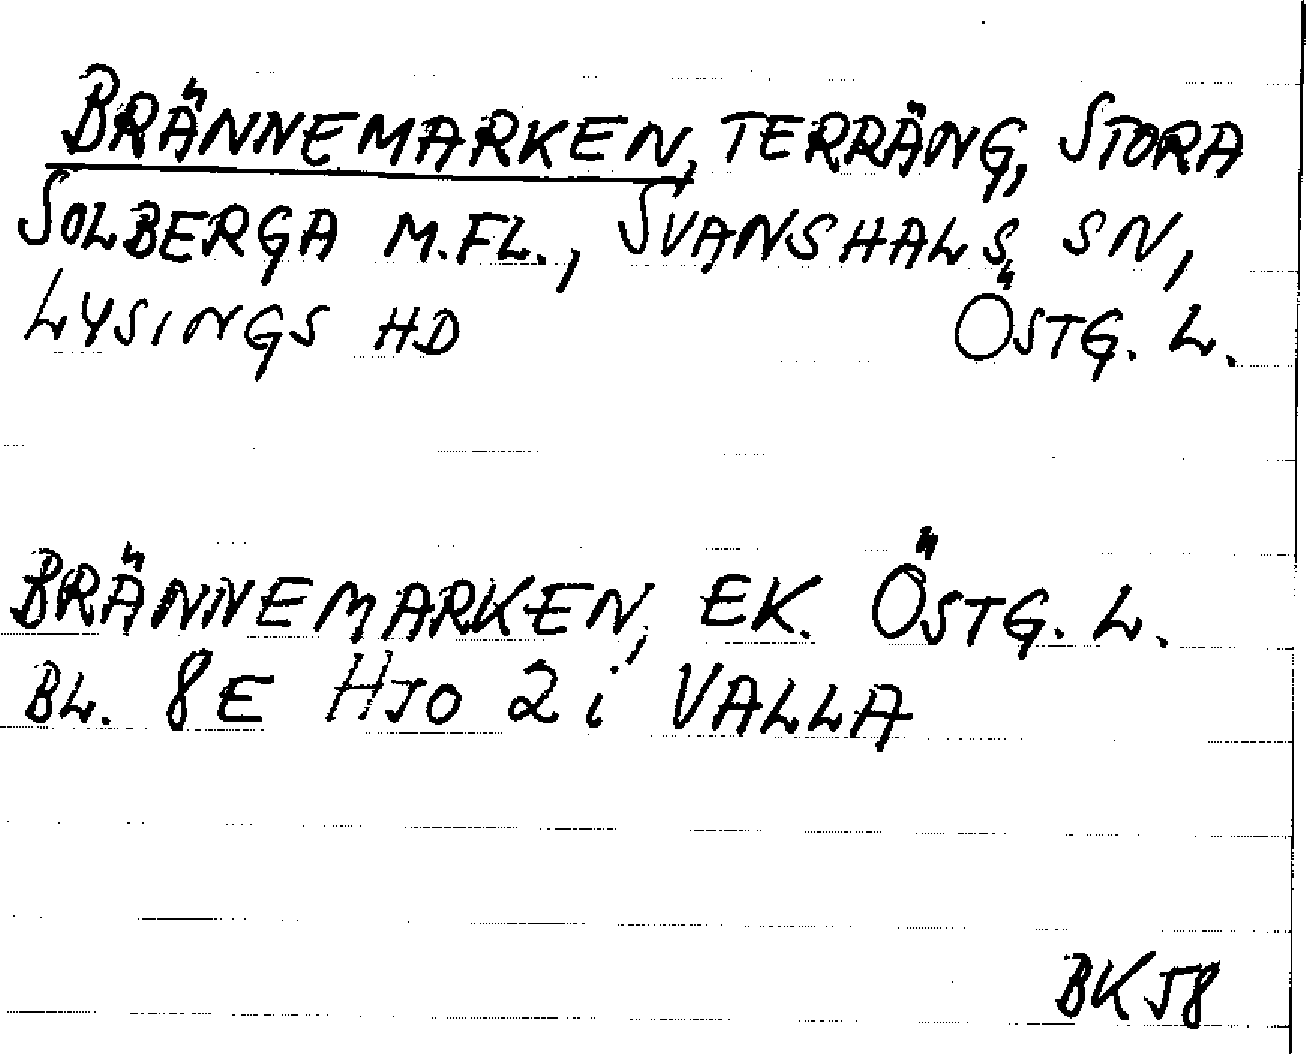 BRÄNNEMARKEN, TERRÄNG, STORA
SOLBERGA M.FL., SVANSHALS SN,
LYSINGS HD ÖSTG. L.
BRÄNNEMARKEN, EK. ÖSTG. L.
BL. 8E HJO 2i VALLA
BK58